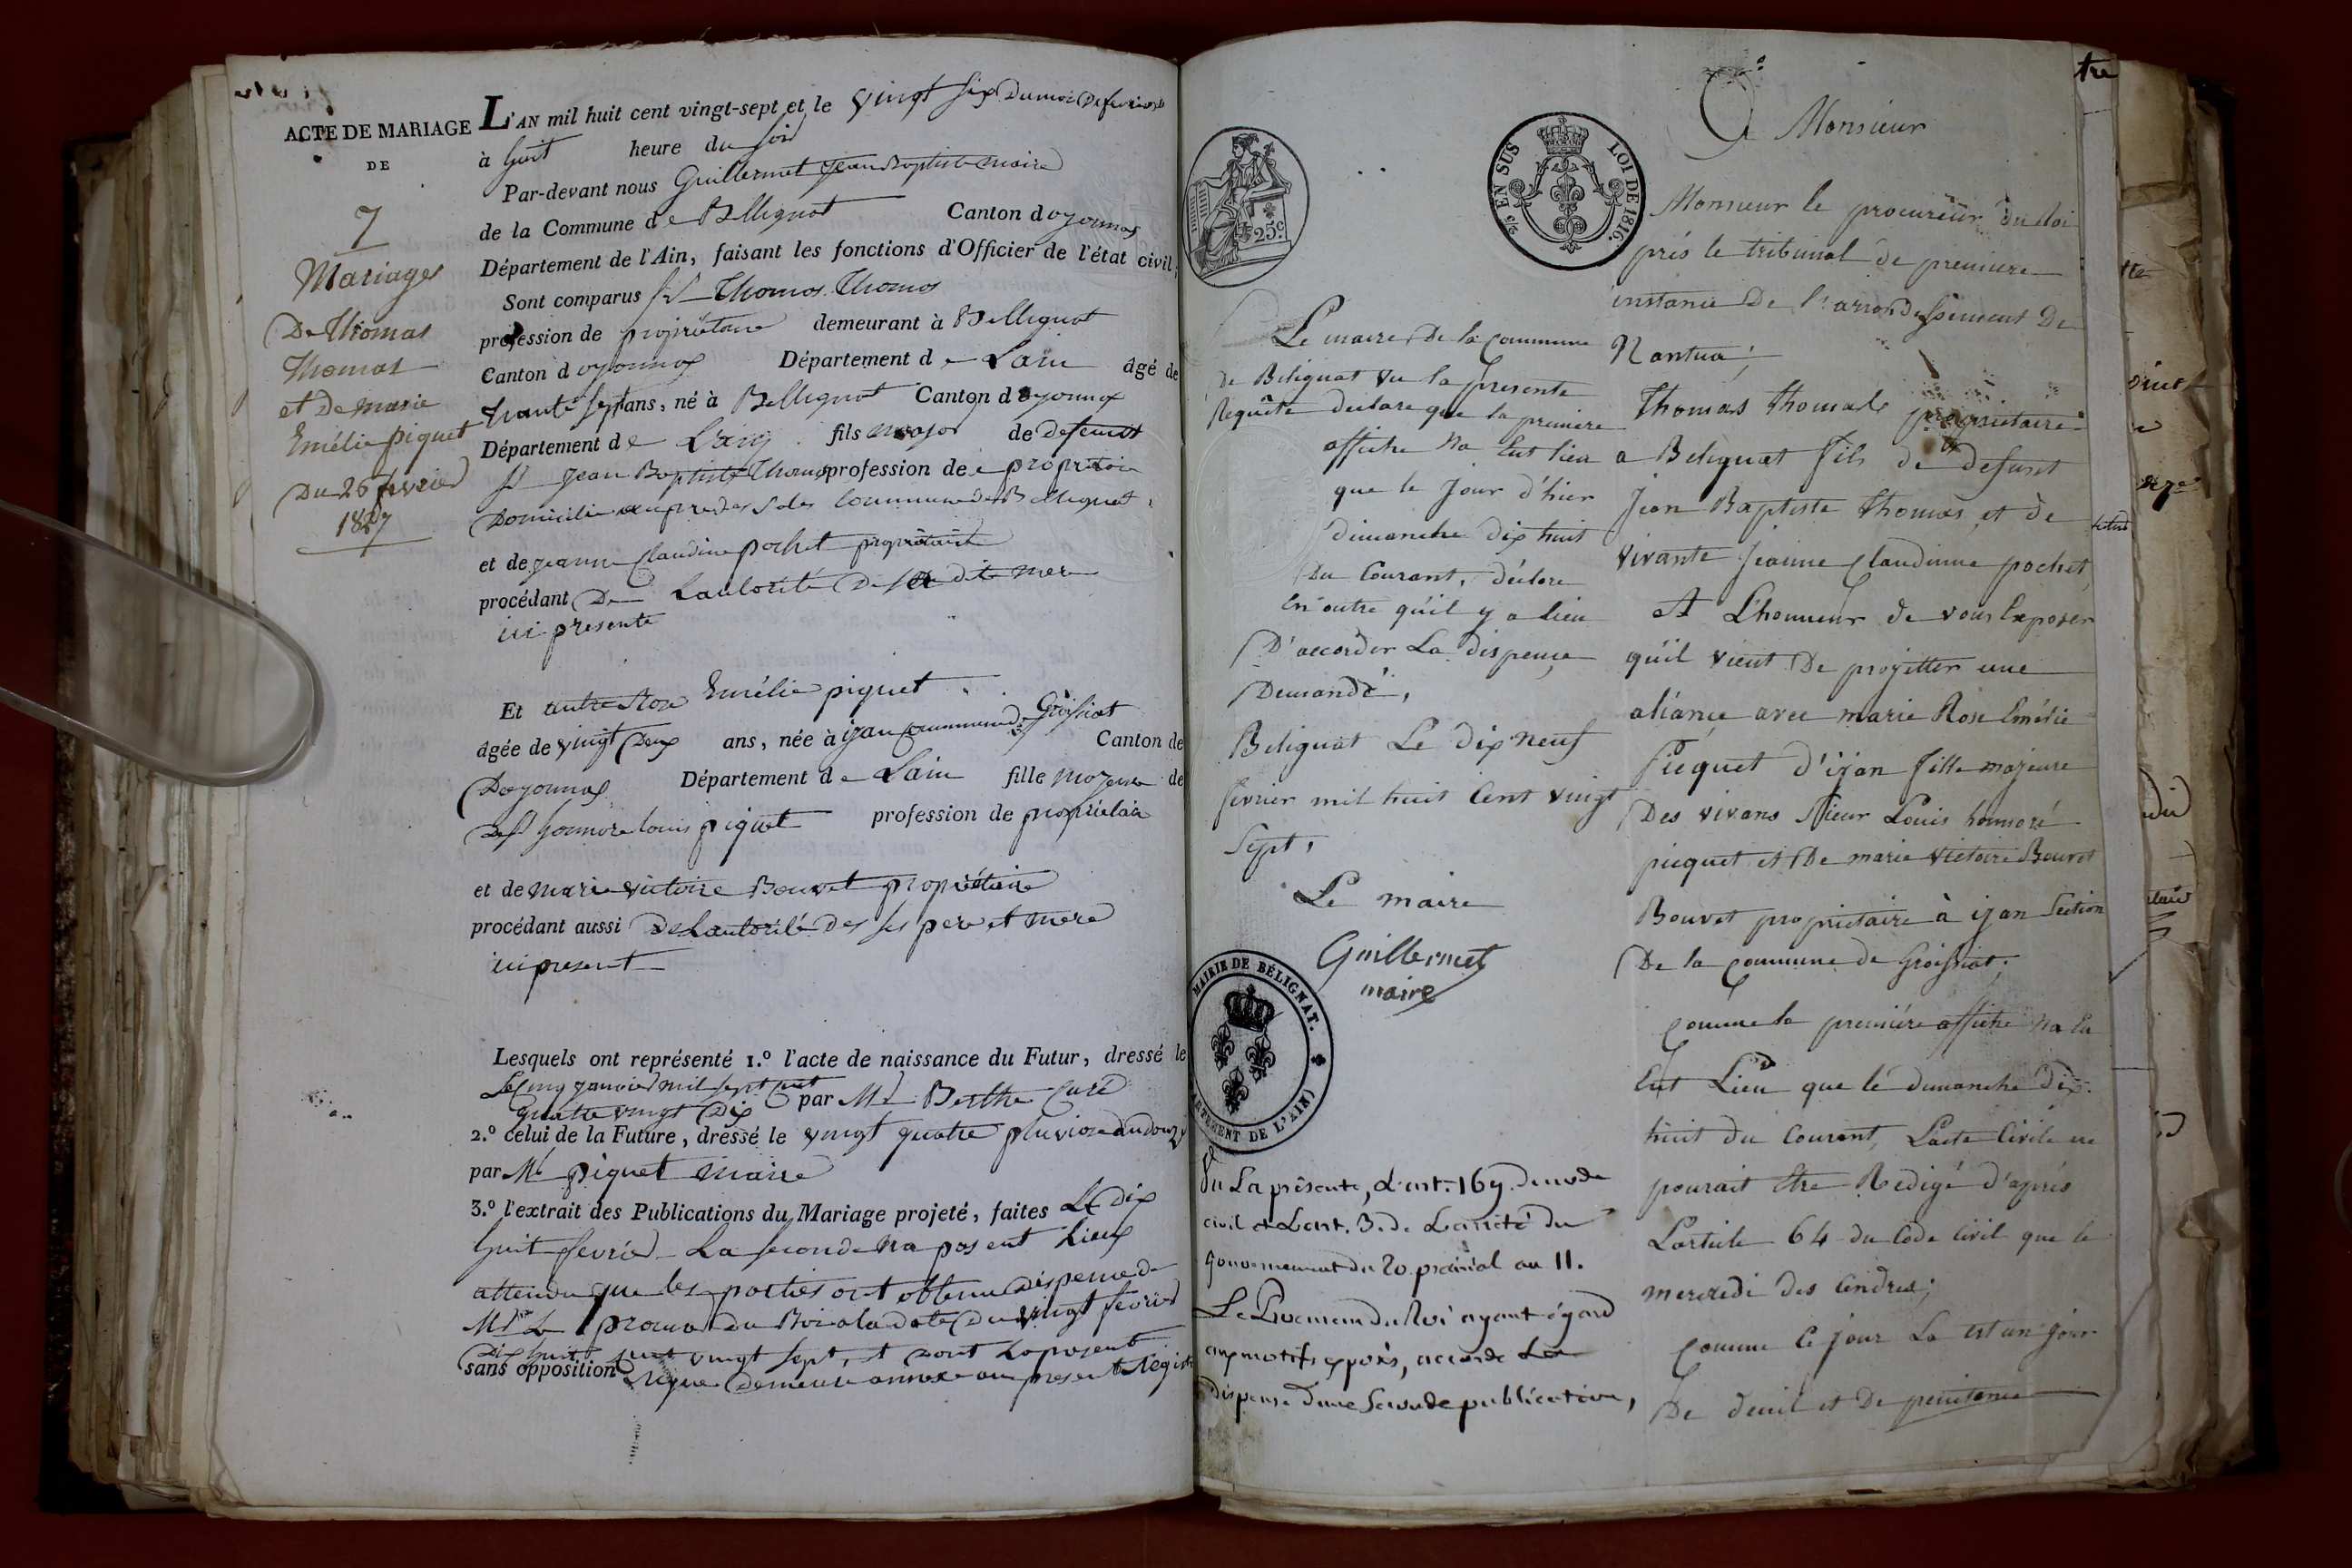 ACTE DE MARIAGE
DE
7
Mariages
De Thomas
Thomas
et de marie
Emélie piquet
Du 26 fevrier
1827
L'AN mil huit cent vingt-sept et le vingt six du mois de fevrier
à huit heure du soir
Par-devant nous Guillermet Jean Baptiste maire
de la Commune de Bellignat Canton doyonnax
Département de l'Ain, faisant les fonctions d'Officier de l'état civil,
Sont comparus Sr Thomas Thomas
profession de propriétaire demeurant à Bellignat
Canton doyonnax Département de Lain âgé de
trante sept ans, né à Bellignat Canton doyonnax
Département de Lain fils major de defunt
Sr Jean Baptiste Thomas profession de propriétaire
Domicilié commune de Bellignat
et de jeanne Claudine pochet propriétaire
procédant De Lautorité de sa dite mere
ici presente
Et autre Rose Emélie piquet
âgée de vingt deux ans, née à izan commune de Groissiat Canton de
Doyonnax Département de Lain fille mojeure de
de Sr honnore louis piquet profession de propriétaire
et de marie victoire Bouvet propriétaire
procédant aussi de Lautorité des ses pere et mere
ici present
Lesquels ont représenté 1.º l'acte de naissance du Futur, dressé le
Le cinq janvier mil sept cent
quatre vingt dix par Mr Berthe Curé
2.º celui de la Future, dressé le vingt quatre pluviose an douze
par Mr piquet maire
3.º l'extrait des Publications du Mariage projeté, faites Le dix
huit fevrier La seconde na pas eut Lieux
attendu que les parties ont obtenu dispense de
Mr Le procureur du Roi a la date du vingt fevrier
Dix huit cent vingt sept, et dont la presente
sans opposition demeure annexe au present Registre
25.c
5/5 EN SUS
LOI DE 1816.
Le maire de la commune
de Bélignat vu la presente
Requête declare que la premiere
affiche na Eut lieu
que le jour d'hier
dimanche dix huit
Du Courant, déclare
En outre qu'il y a lieu
D'accorder La dispense
Demandé,
Bélignat Le dix neuf
fevrier mil huit Cent vingt
Sept,
Le maire
Guillermet
maire
MAIRIE DE BÉLIGNAT.
(DÉPARTEMENT DE L'AIN)
Vu La présente, L'art. 169 du code
civil et L'art. 3. de L'arrêté du
gouvernement du 20 prairial an 11.
Le Procureur du Roi ayant égard
aux motifs exposés, accorde La
dispense d'une seconde publication,
A Monsieur
Monsieur le procureur du Roi
prés le tribunal de premiere
instance De l'arrondissement De
Nantua;
Thomas Thomas propriétaire
a Béliguat fils de defunt
Jean Baptiste Thomas, et de
vivante Jeanne Claudinne pochet
A L'honneur de vous Exposer
qu'il vient De projetter une
aliance avec marie Rose Emélie
Picquet d'izan fille majeure
Des vivans Sieur Louis honnoré
picquet et De marie victoire Bouvet
Bouvet propriétaire à izan Section
De la Commune de Groissiat;
Comme la premiére affiche na Eu
Eut Lieu que le dimanche dix
huit du Courant, L'acte Civile ne
pourait Etre Redigé d'après
L'article 64 du Code Civil que le
mercredi des Cendres;
Comme Ce jour La est un jour
De deuil et De penitance
tre